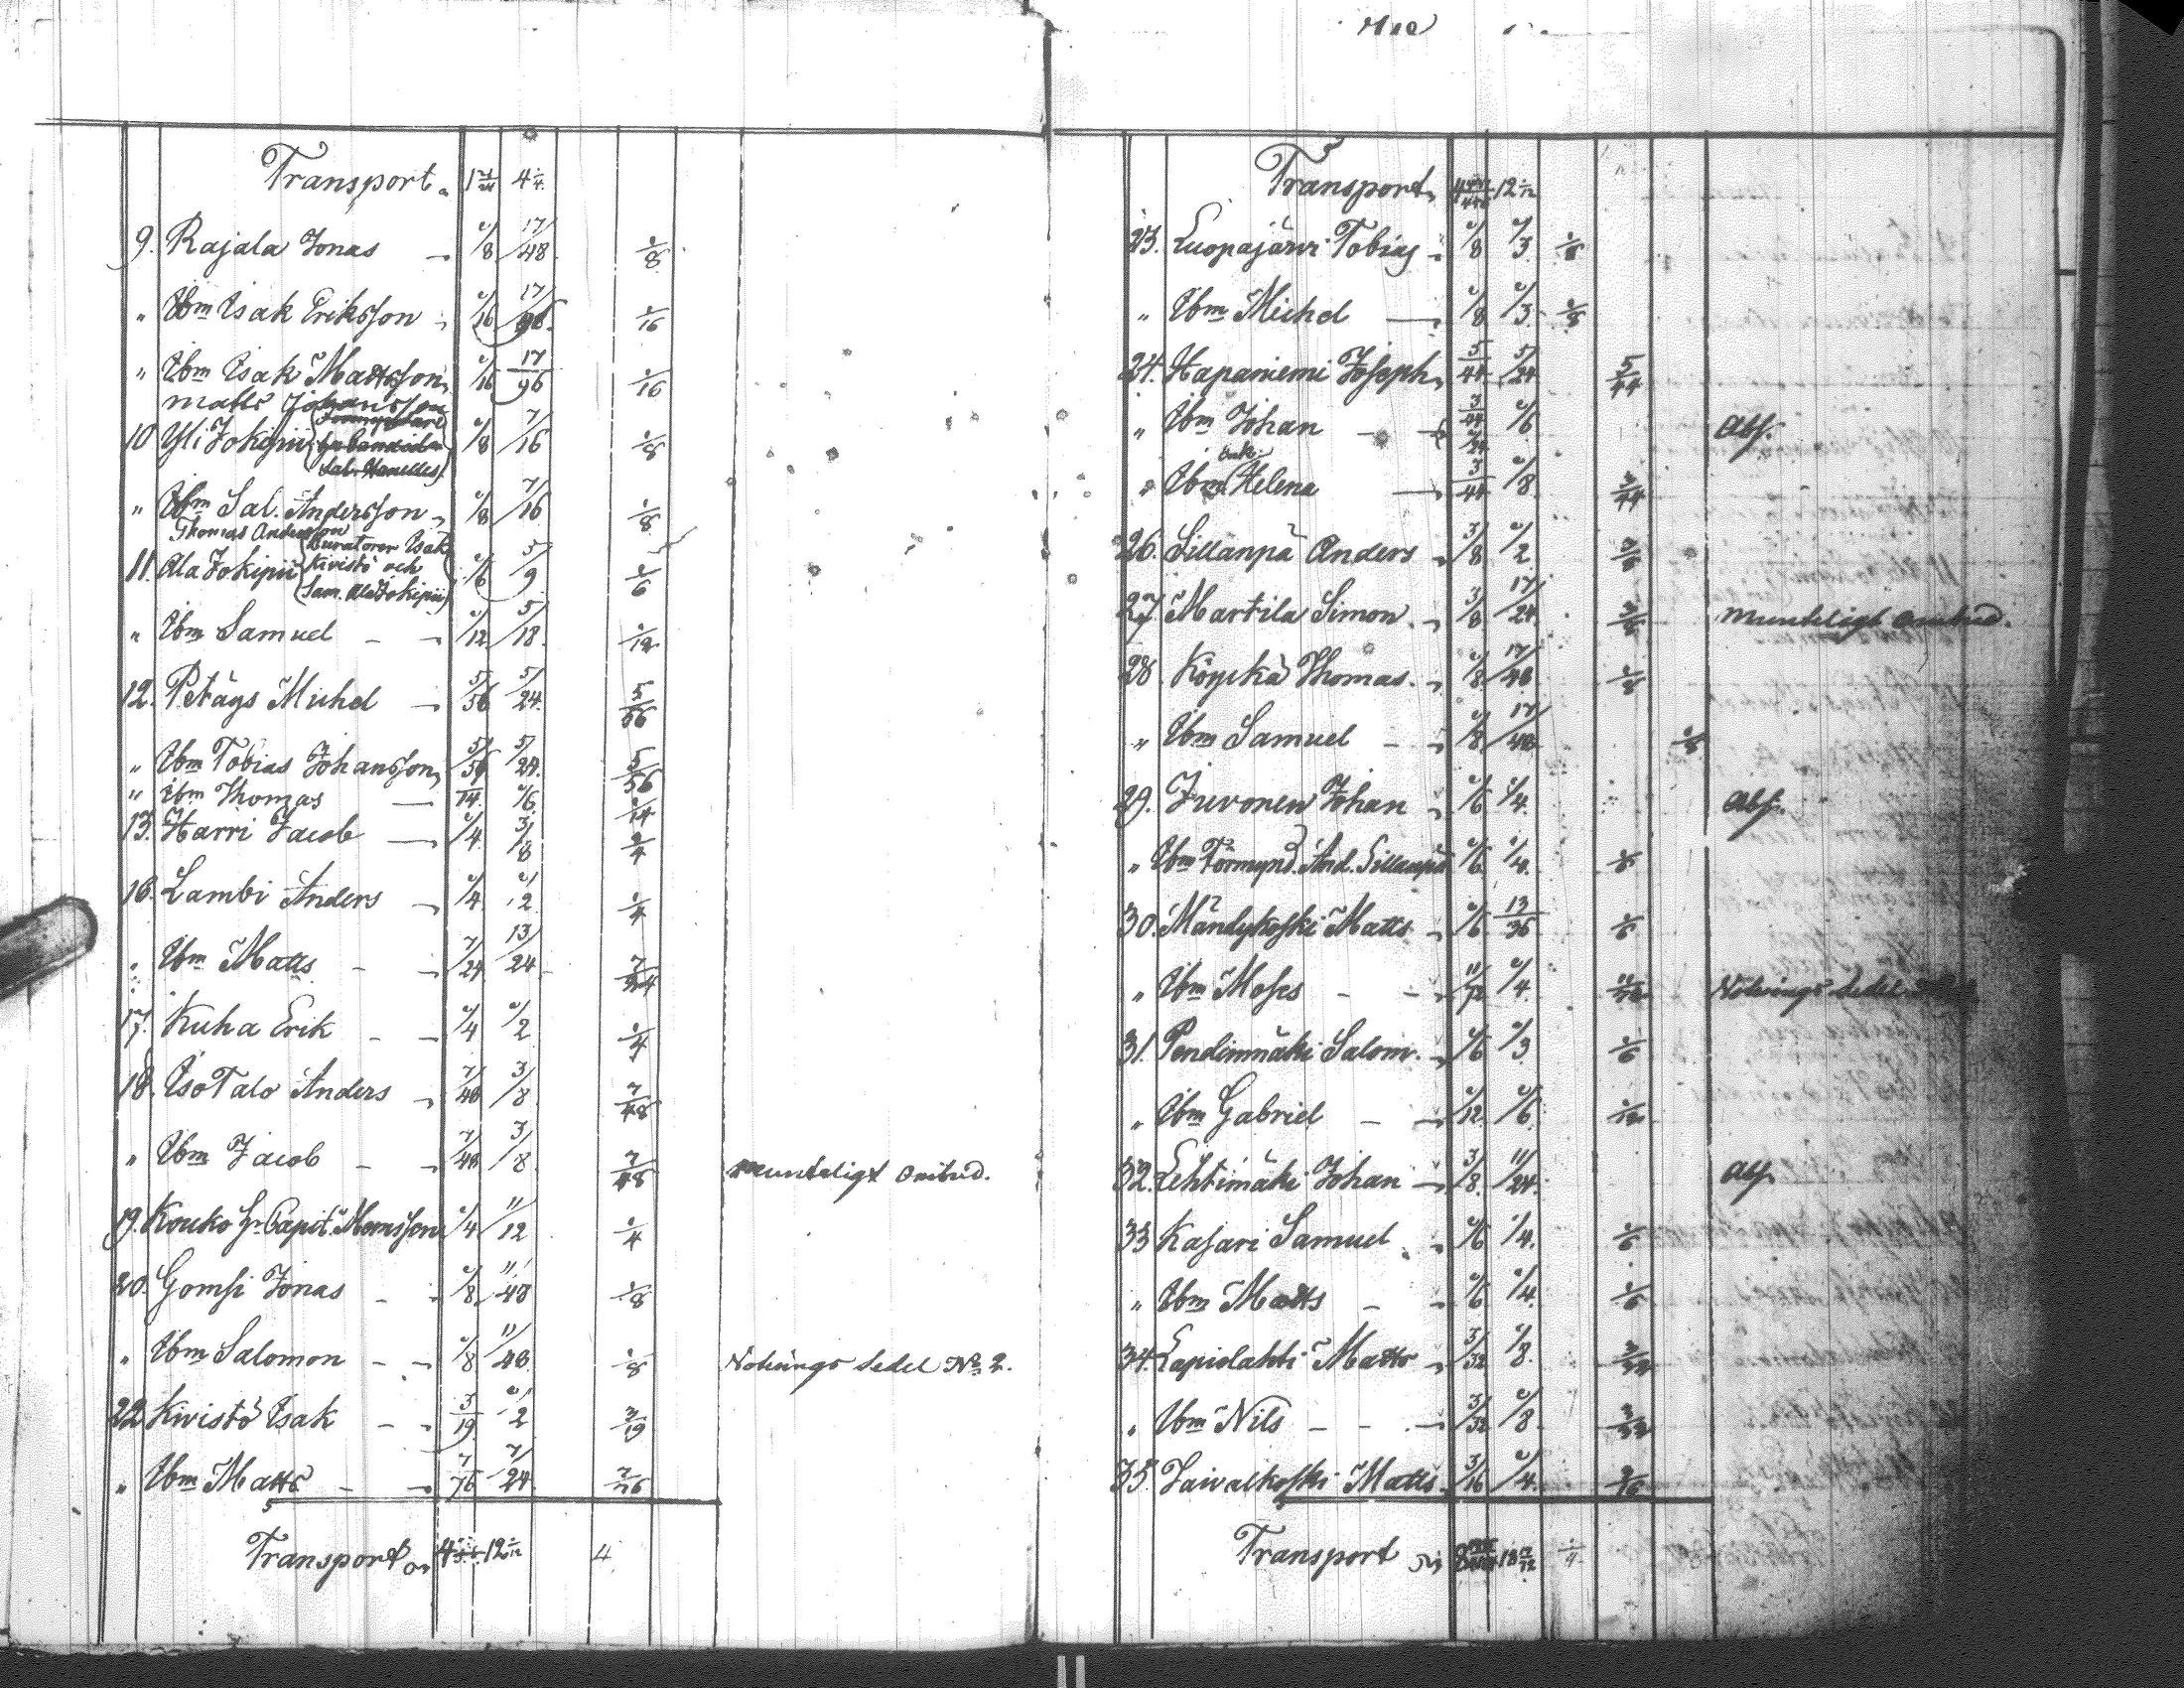 Transport 1 4 1/4
9. Rajala Jonas 1/8 17/48 1/8
" Ibm Isak Eriksson 1/16 17/96 1/16
" Ibm Isak Mattsson 1/16 17/96 1/16
Matts Johansson
10 Yli Jokipii 1/8 7/16 1/8
" Ibm Sal. Andersson 1/8 7/16 1/8
Thomas Andersson
11. Ala Jokipii (Curatorer Isak Kivistö och Sam. Ala Jokipii) 1/6 5/9 1/6
" Ibm Samuel 1/12 5/18 1/12
12. Petäys Michel 5/56 5/24 5/56
" Ibm Tobias Johansson 5/56 5/24 5/56
" Ibm Thomas 1/14 1/6 1/14
13. Harri Jacob 1/4 3/8 1/4
16. Lambi Anders 1/4 1/2 1/4
" Ibm Matts 7/24 13/24 7/24
17. Kuha Erik 1/4 1/2 1/4
18. Iso Talo Anders 7/48 3/8 7/48
" Ibm Jacob 7/48 3/8 7/48 Munteligt Ombud.
19. Kouko Hr Capit. 1/4 11/12 1/4
20. Gomsi Jonas 1/8 11/48 1/8
" Ibm Salomon 1/8 11/48 1/8 Notrings Sedel No 2.
22 Kivistö Isak 3/19 1/2 3/19
" Ibm Matts 7/76 7/24 7/76
Transport 12 1/12 4
Transport 12 1/12
23. Luopajärvi Tobias 1/8 1/3 1/8
" Ibm Michel 1/8 1/3 1/8
24. Hapaniemi Joseph 5/44 5/24 5/44
" Ibm Johan 3/44 1/6 Abs.
" Ibm Enk. Helena 3/44 1/8 3/44
26. Sillanpä Anders 3/8 1/2 3/8
27 Martila Simon 3/8 17/24 3/8 Munteligt Ombud.
28 Köykä Thomas 1/8 17/48 1/8
" Ibm Samuel 1/8 17/48 1/8
29. Juvonen Johan 1/6 1/4 Abs.
" Ibm Förmynd. And. Sillanpä 1/6 1/4 1/6
30. Mändykoski Matts 1/6 13/36 1/6
" Ibm Moses 11/72 1/4 11/72 Notrings Sedel
31. Pendinmäki Salom. 1/6 1/3 1/6
" Ibm Gabriel 1/12 1/6 1/12
32. Lehtimäki Johan 3/8 11/24 Abs.
33 Kasari Samuel 1/6 1/4 1/6
" Ibm Matts 1/6 1/4 1/6
34. Lapiolahti Matts 3/32 1/8 3/32
" Ibm Nils 3/32 1/8 3/32
35. Jaivalkoski Matts 3/16 1/4 3/16
Transport 18 1/4